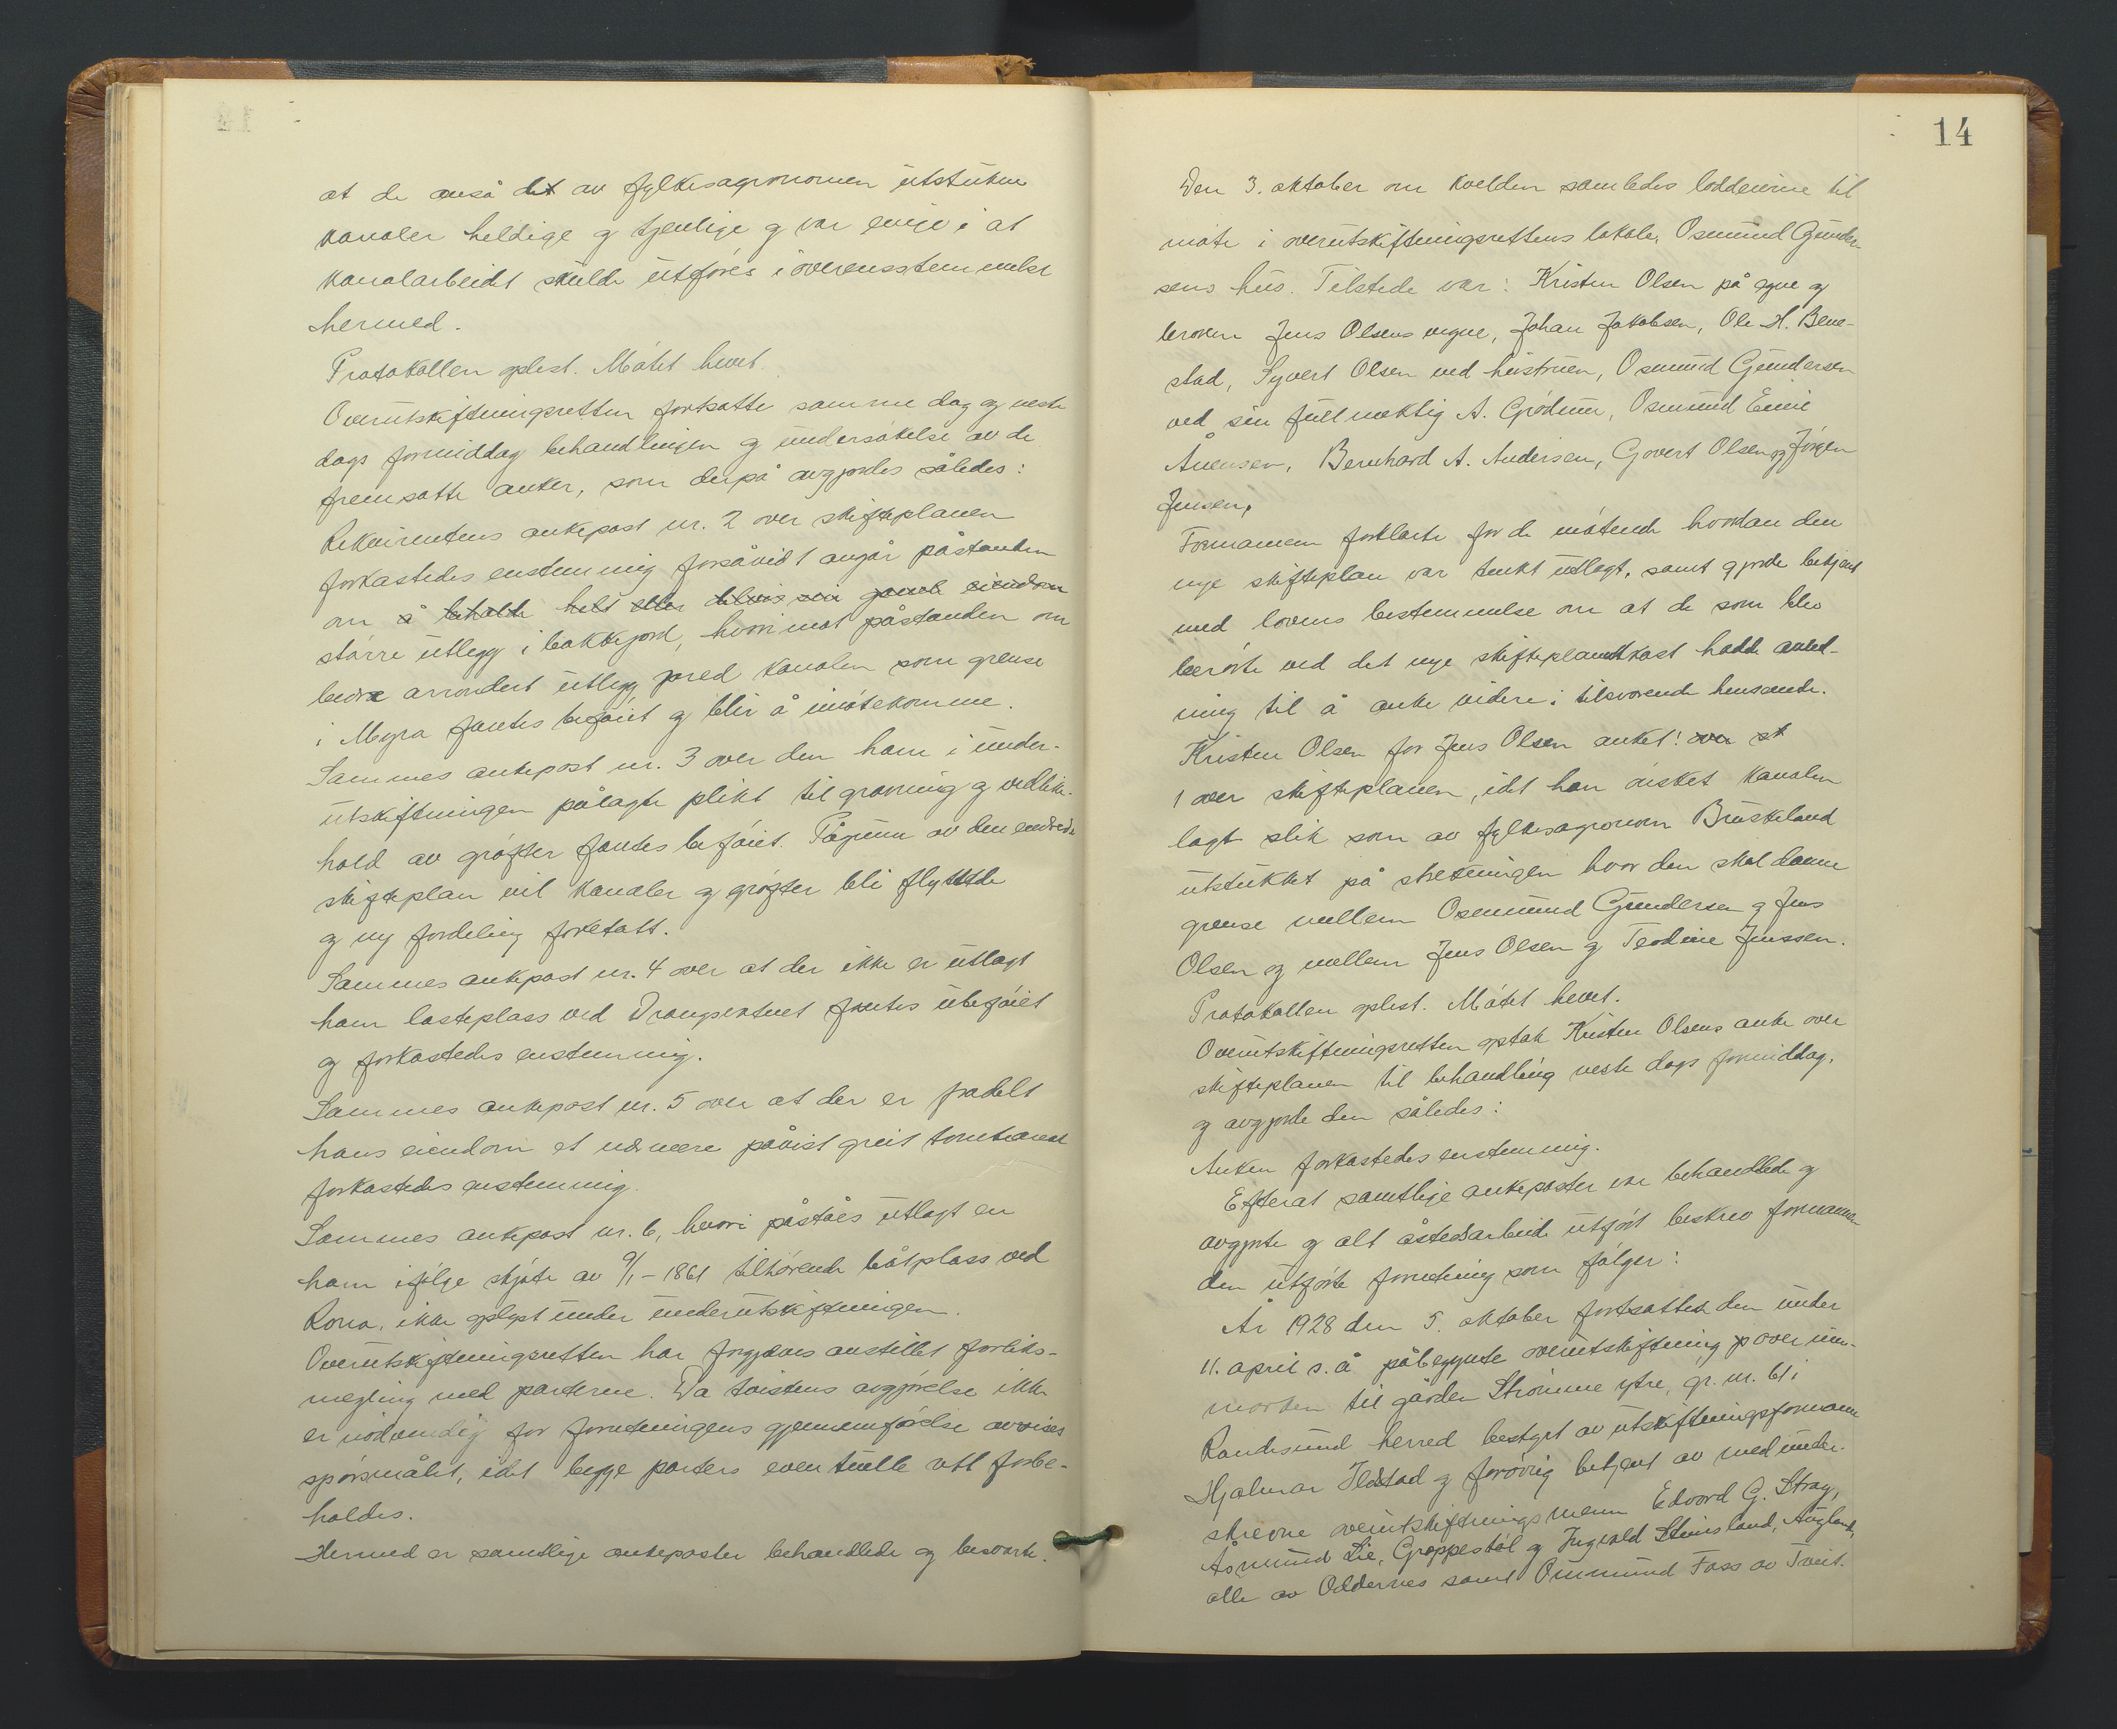 at de anså det av fylkesagronomen utstukne
kanaler heldige og tjenlige og var enige i at
kanalarbeidet skulde utføres i overensstemmelse
hermed.
Protokollen oplest. Møtet hevet.
Overutskiftningsretten fortsatte samme dag og neste
dags formiddag behandlingen og undersøkelse av de
fremsatte anker, som derpå avgjordes således:
Rekvirentens ankepost nr. 2 over skifteplanen
forkastedes enstemmig forsåvidt angår påstanden
om å beholde helt eller delvis sin gamle eiendom
større utlegg i bakkejord, hvorimot påstanden om
bedre arrondert utlegg med kanalen som grense
i Myra fantes beføiet og blir å imøtekomme.
Sammes ankepost nr. 3 over den ham i under-
utskiftningen pålagte plikt til gravning og vedlike-
hold av grøfter fantes beføiet. På grunn av den endrede
skifteplan vil kanaler og grøfter bli flyttede
og ny fordeling foretatt.
Sammes ankepost nr. 4 over at der ikke er utlagt
ham lasteplass ved Drangsvatnet fantes ubeføiet
og forkastedes enstemmig.
Sammes ankepost nr. 5 over at der er fradelt
hans eiendom et nærmere påvist greit tomteareal
forkastedes enstemmig.
Sammes ankepost nr. 6, hvori påståes utlagt en
ham ifølge skjøte av 9/1 - 1861 tilhørende båtplass ved
Rona, ikke oplyst under underutskiftningen.
Overutskiftningsretten har forgjæves anstillet forliks-
megling med parterne. Da tvistens avgjørelse ikke
er nødvendig for forretningens gjennemførelse avvises
spørsmålet, idet begge parters eventuelle rett forbe-
holdes.
Hermed er samtlige ankeposter behandlede og besvarte.
14
Den 3. oktober om kvelden samledes loddeierne til
møte i overutskiftningsrettens lokale, Osmund Gunder-
sens hus. Tilstede var: Kristen Olsen på egne og
broren Jens Olsens vegne, Johan Jakobsen, Ole H. Bene-
stad, Syvert Olsen ved hustruen, Osmund Gundersen
ved sin fullmektig A. Grødum, Osmund Emil
Åuensen, Bernhard A. Andersen, Govert Olsen og Jørgen
Jensen.
Formannen forklarte for de møtende hvordan den
nye skifteplan var tenkt utlagt, samt gjorde bekjent
med lovens bestemmelse om at de som blev
berørte ved det nye skifteplanutkast hadde anled-
ning til å anke videre i tilsvarende henseende.
Kristen Olsen for Jens Olsen anket: over sk
1 over skifteplanen, idet han ønsket kanalen
lagt slik som av fylkesagronom Bruskeland
utstukket på strekningen hvor den skal danne
grense mellem Osmund Gundersen og Jens
Olsen og mellem Jens Olsen og Teodine Jenssen.
Protokollen oplest. Møtet hevet.
Overutskiftningsretten optok Kristen Olsens anke over
skifteplanen til behandling neste dags formiddag,
og avgjorde den således:
Anken forkastedes enstemmig.
Efterat samtlige ankeposter var behandlede og
avgjorte og alt åstedsarbeide utført beskrev formannen
den utførte forretning som følger:
År 1928 den 5. oktober fortsattes den under
11. april s. å. påbegynte overutskiftning over inn-
marken til gården Strømme ytre, gr. nr. 61 i
Randesund herred bestyrt av utskiftningsformann
Hjalmar Ilestad og forøvrig betjent av med under-
skrevne overutskiftningsmenn Edvard G. Stray,
Åsmund Lie, Groppestøl og Ingvald Steinsland, Augland,
alle av Oddernes samt Ommund Foss av Tveit.